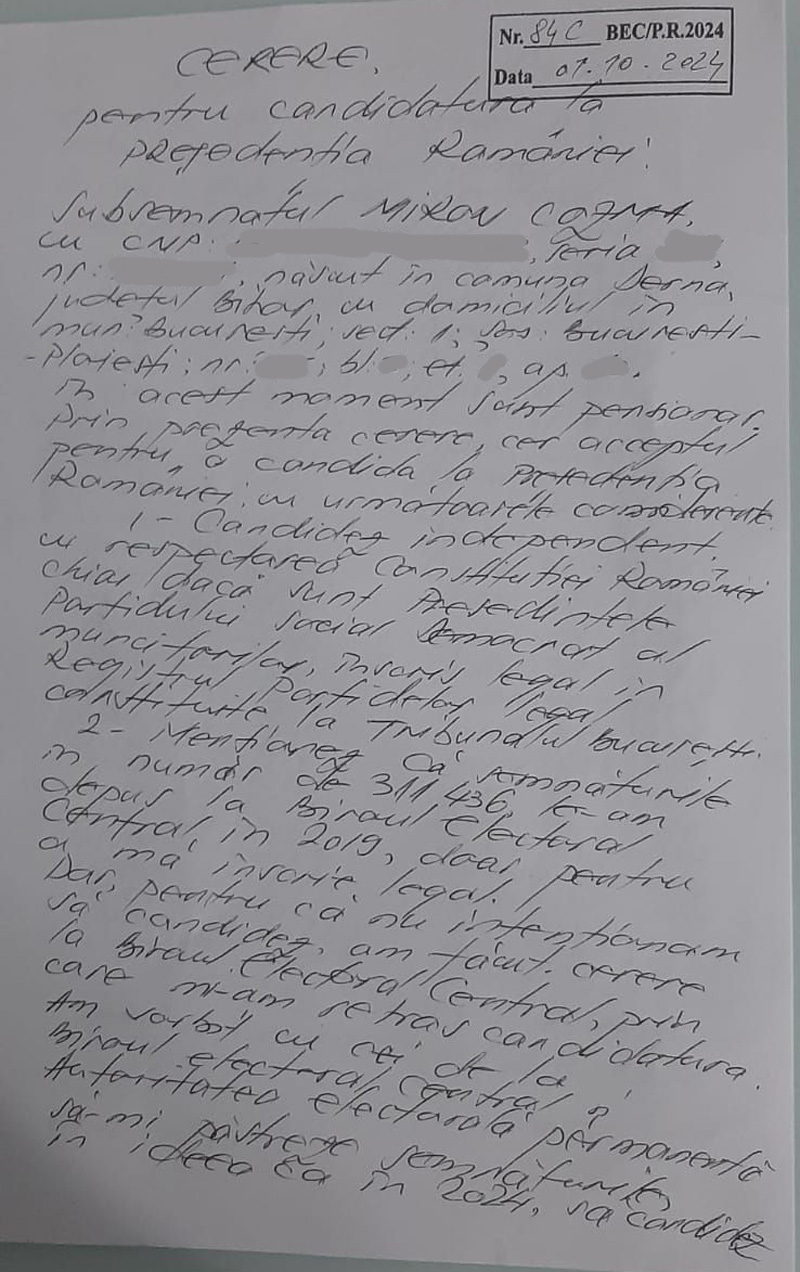 Nr. 84C BEC/P.R.2024
Data 01.10.2024
CERERE,
pentru candidatura la
PREŞEDENŢIA României!
Subsemnatul MIRON COZMA,
cu CNP: , seria ,
nr: , născut în comuna Derna,
judeţul Bihor, cu domiciliul în
mun. Bucureşti, sect: 1; şos: Bucureşti-
-Ploieşti; nr: ; bl: ; et. , ap. .
În acest moment sunt pensionar.
Prin prezenta cerere, cer acceptul
pentru a candida la Preşedenţia
României, cu următoarele considerente
1- Candidez independent.
cu respectarea Constituţiei României
chiar dacă sunt Preşedintele
Partidului Social Democrat al
muncitorilor, înscris legal în
Registrul Partidelor legal
constituite la Tribunalul Bucureşti.
2- Menţionez că semnăturile
în număr de 311.436, le-am
depus la Biroul Electoral
Central, în 2019, doar pentru
a mă înscrie legal.
Dar, pentru că nu intenţionam
să candidez, am făcut cerere
la Biroul Electoral Central, prin
care mi-am retras candidatura.
Am vorbit cu cei de la
Biroul electoral Central şi
Autoritatea electorală permanentă
să-mi păstreze semnăturile,
în ideea că în 2024, să candidez